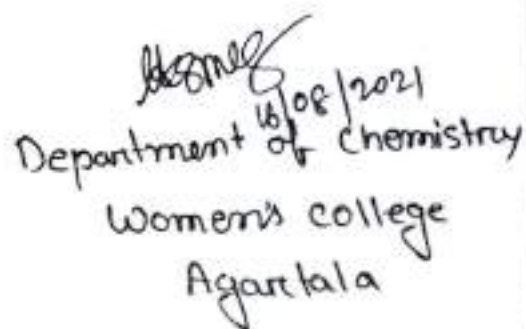 16/08/2021
Department of Chemistry
Women's college
Agartala